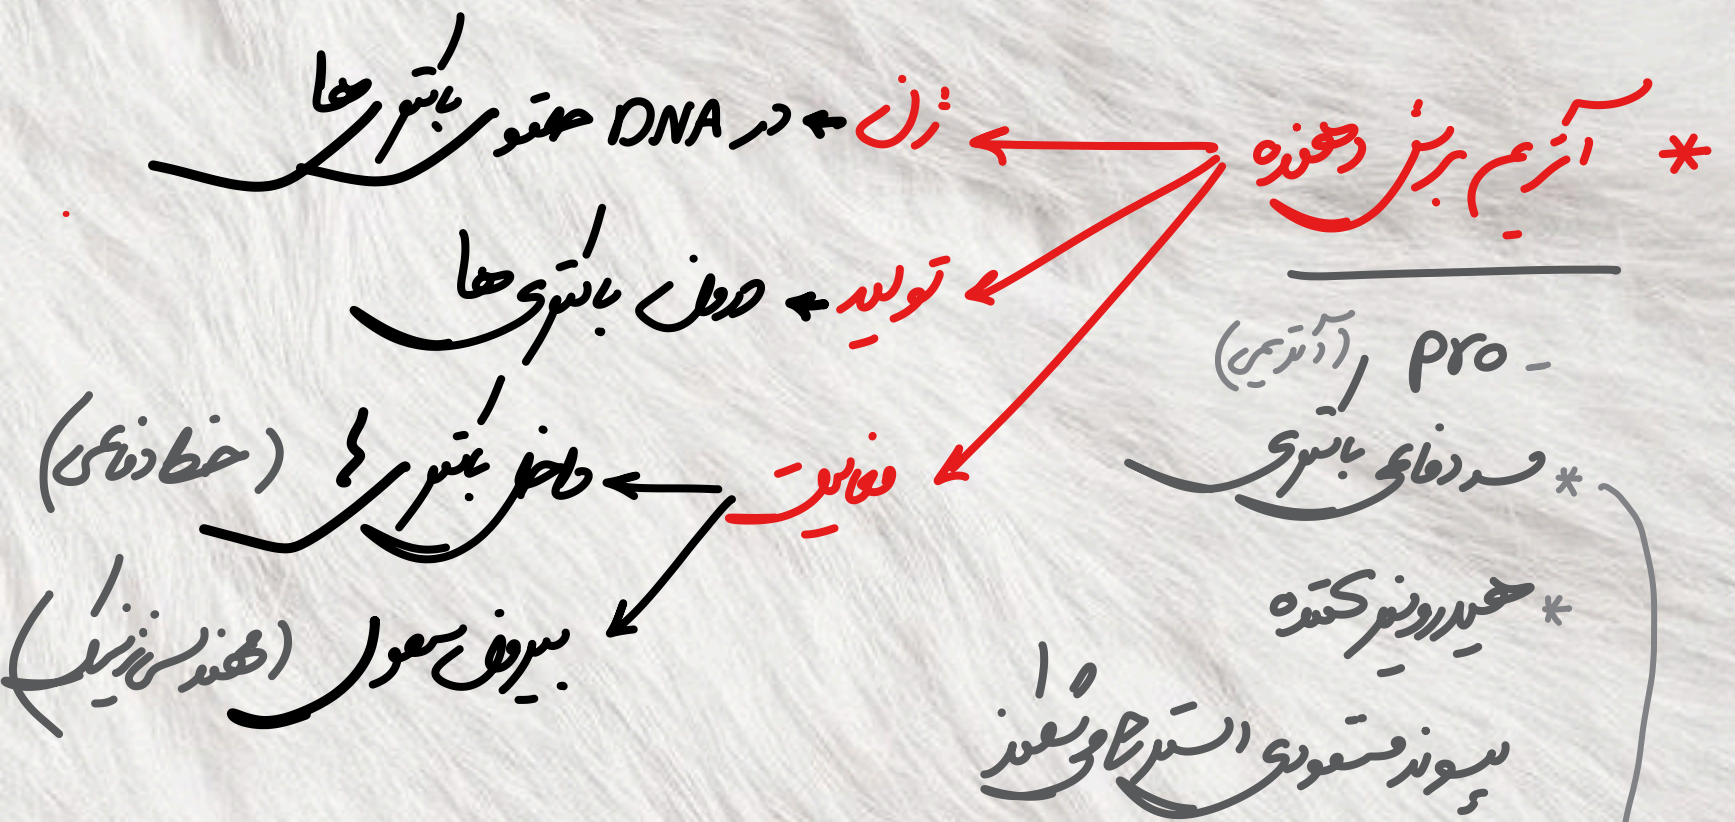 * آنزیم برش دهنده
ژن ← در DNA حلقوی باکتری ها
تولید ← درون باکتری ها
فعالیت
داخل باکتری ها (خط دفاعی)
بیرون سلول (مهندسی ژنتیک)
- pro (آنزیمی)
* سد دفاعی باکتری
* هیدرولیز کننده
پیوند فسفودی استر را می شکند